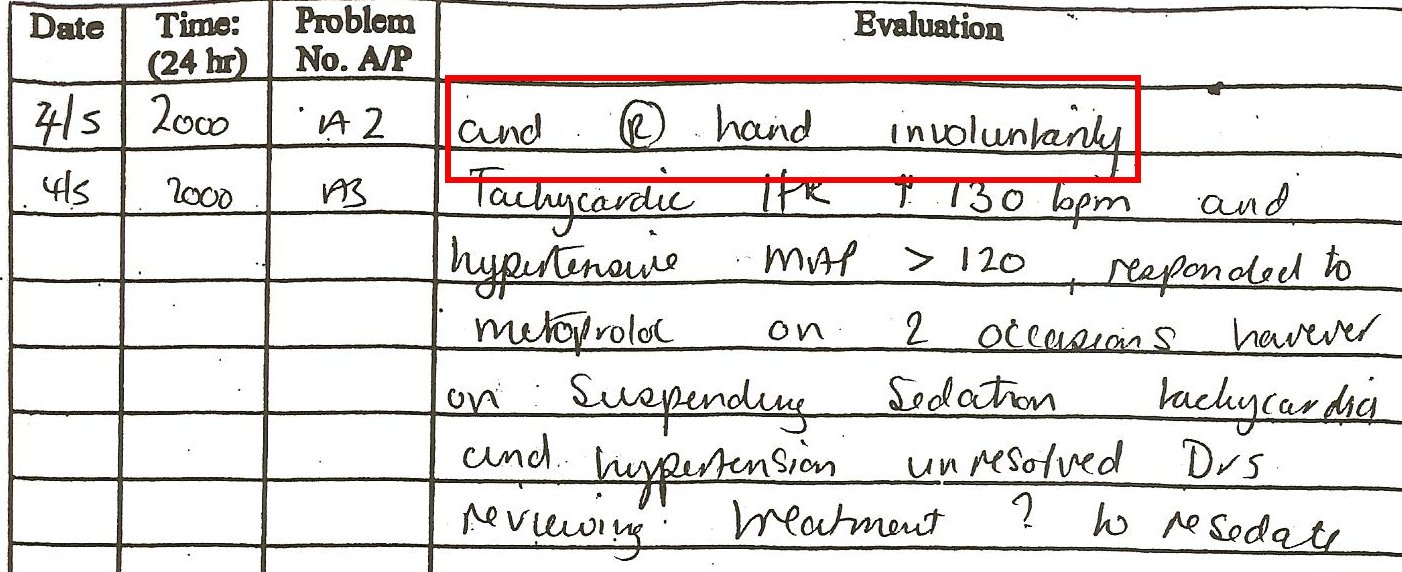 Date Time: (24 hr) Problem No. A/P Evaluation
4/5 2000 A2 and Ⓡ hand involuntarily
4/5 2000 A3 Tachycardic HR ↑ 130 bpm and
hypertensive MAP > 120, responded to
metoprolol on 2 occasions however
on suspending sedation tachycardia
and hypertension unresolved Drs
reviewing treatment ? to resedate